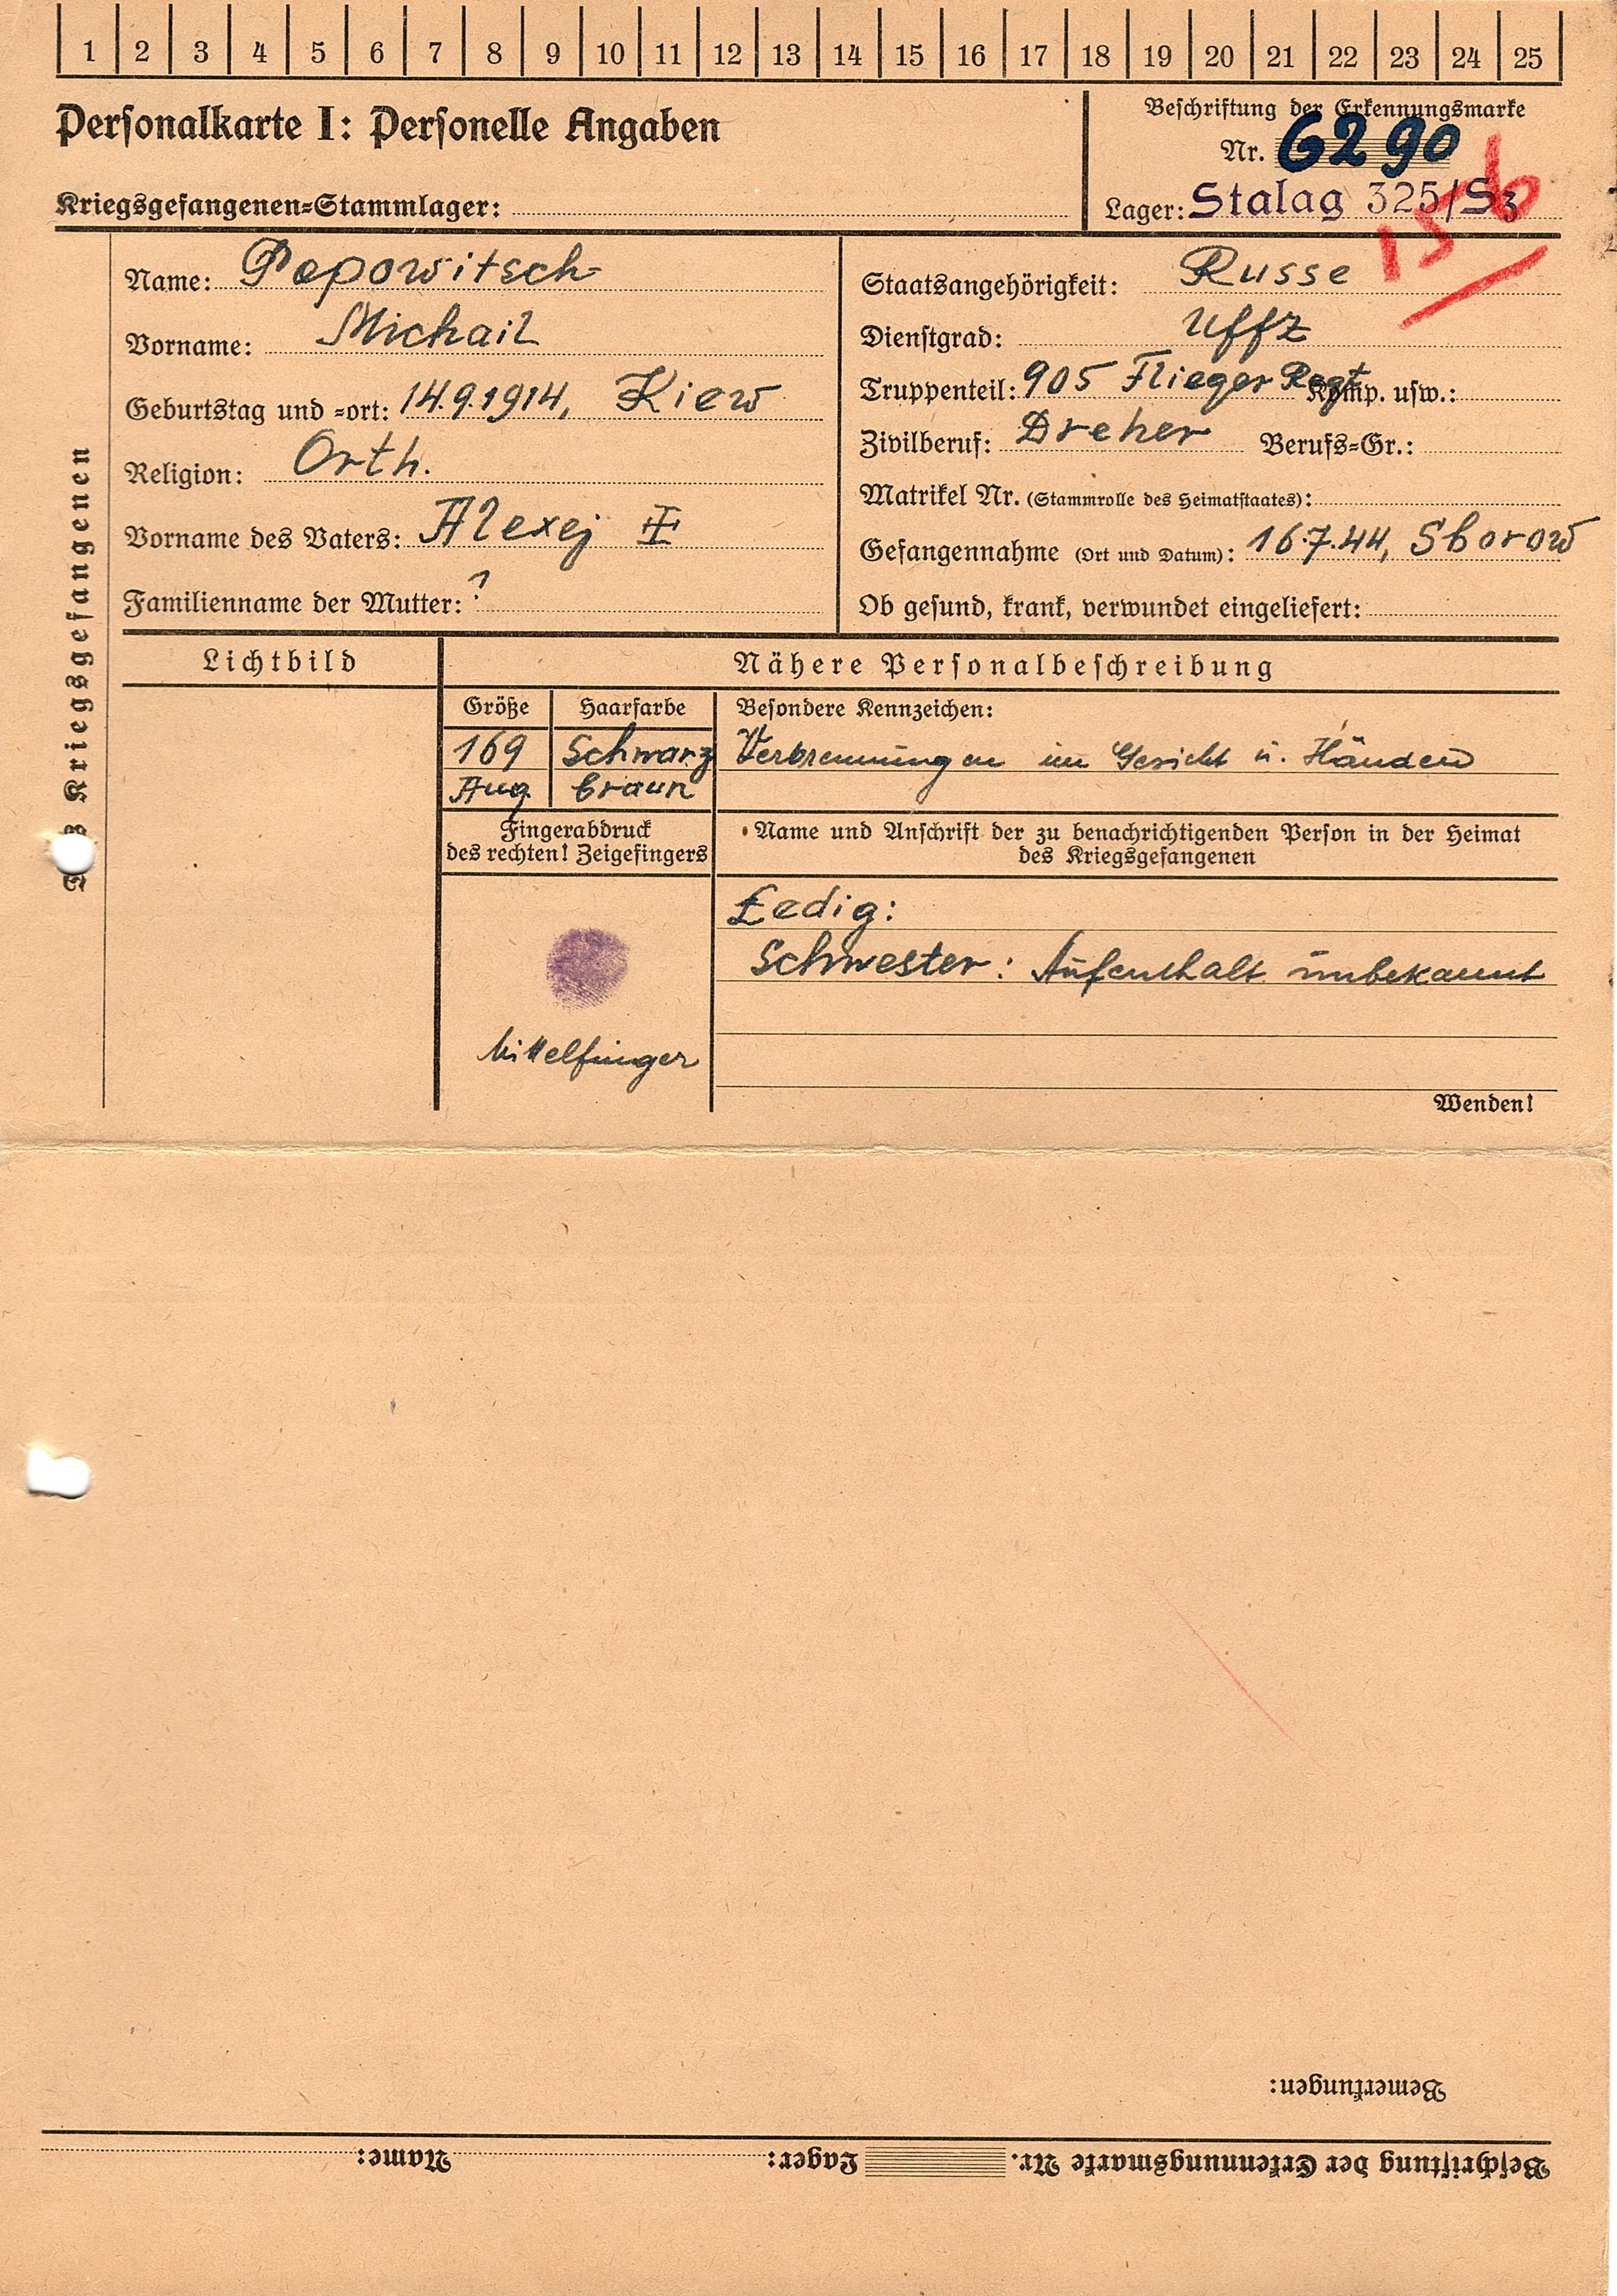 1 2 3 4 5 6 7 8 9 10 11 12 13 14 15 16 17 18 19 20 21 22 23 24 25
Personalkarte I: Personelle Angaben
Kriegsgefangenen-Stammlager:
Beschriftung der Erkennungsmarke
Nr. 6290
Lager: Stalag 325/Sz
Kriegsgefangenen
Name: Popowitsch
Vorname: Michail
Geburtstag und -ort: 14.9.1914, Kiew
Religion: Orth.
Vorname des Vaters: Alexej
Familienname der Mutter: ?
Staatsangehörigkeit: Russe
Dienstgrad: Uffz
Truppenteil: 905 Flieger Regt Komp. usw.:
Zivilberuf: Dreher Berufs-Gr.:
Matrikel Nr. (Stammrolle des Heimatstaates):
Gefangennahme (Ort und Datum): 16.7.44, Sborow
Ob gesund, krank, verwundet eingeliefert:
Lichtbild
Nähere Personalbeschreibung
Größe Haarfarbe Besondere Kennzeichen:
169 Schwarz Verbrennungen im Gesicht u. Händen
Aug. braun
Fingerabdruck
des rechten! Zeigefingers
Mittelfinger
Name und Anschrift der zu benachrichtigenden Person in der Heimat
des Kriegsgefangenen
Ledig:
Schwester: Aufenthalt unbekannt
Wenden!
Bemerkungen:
Beschriftung der Erkennungsmarke Nr. Lager: Name: